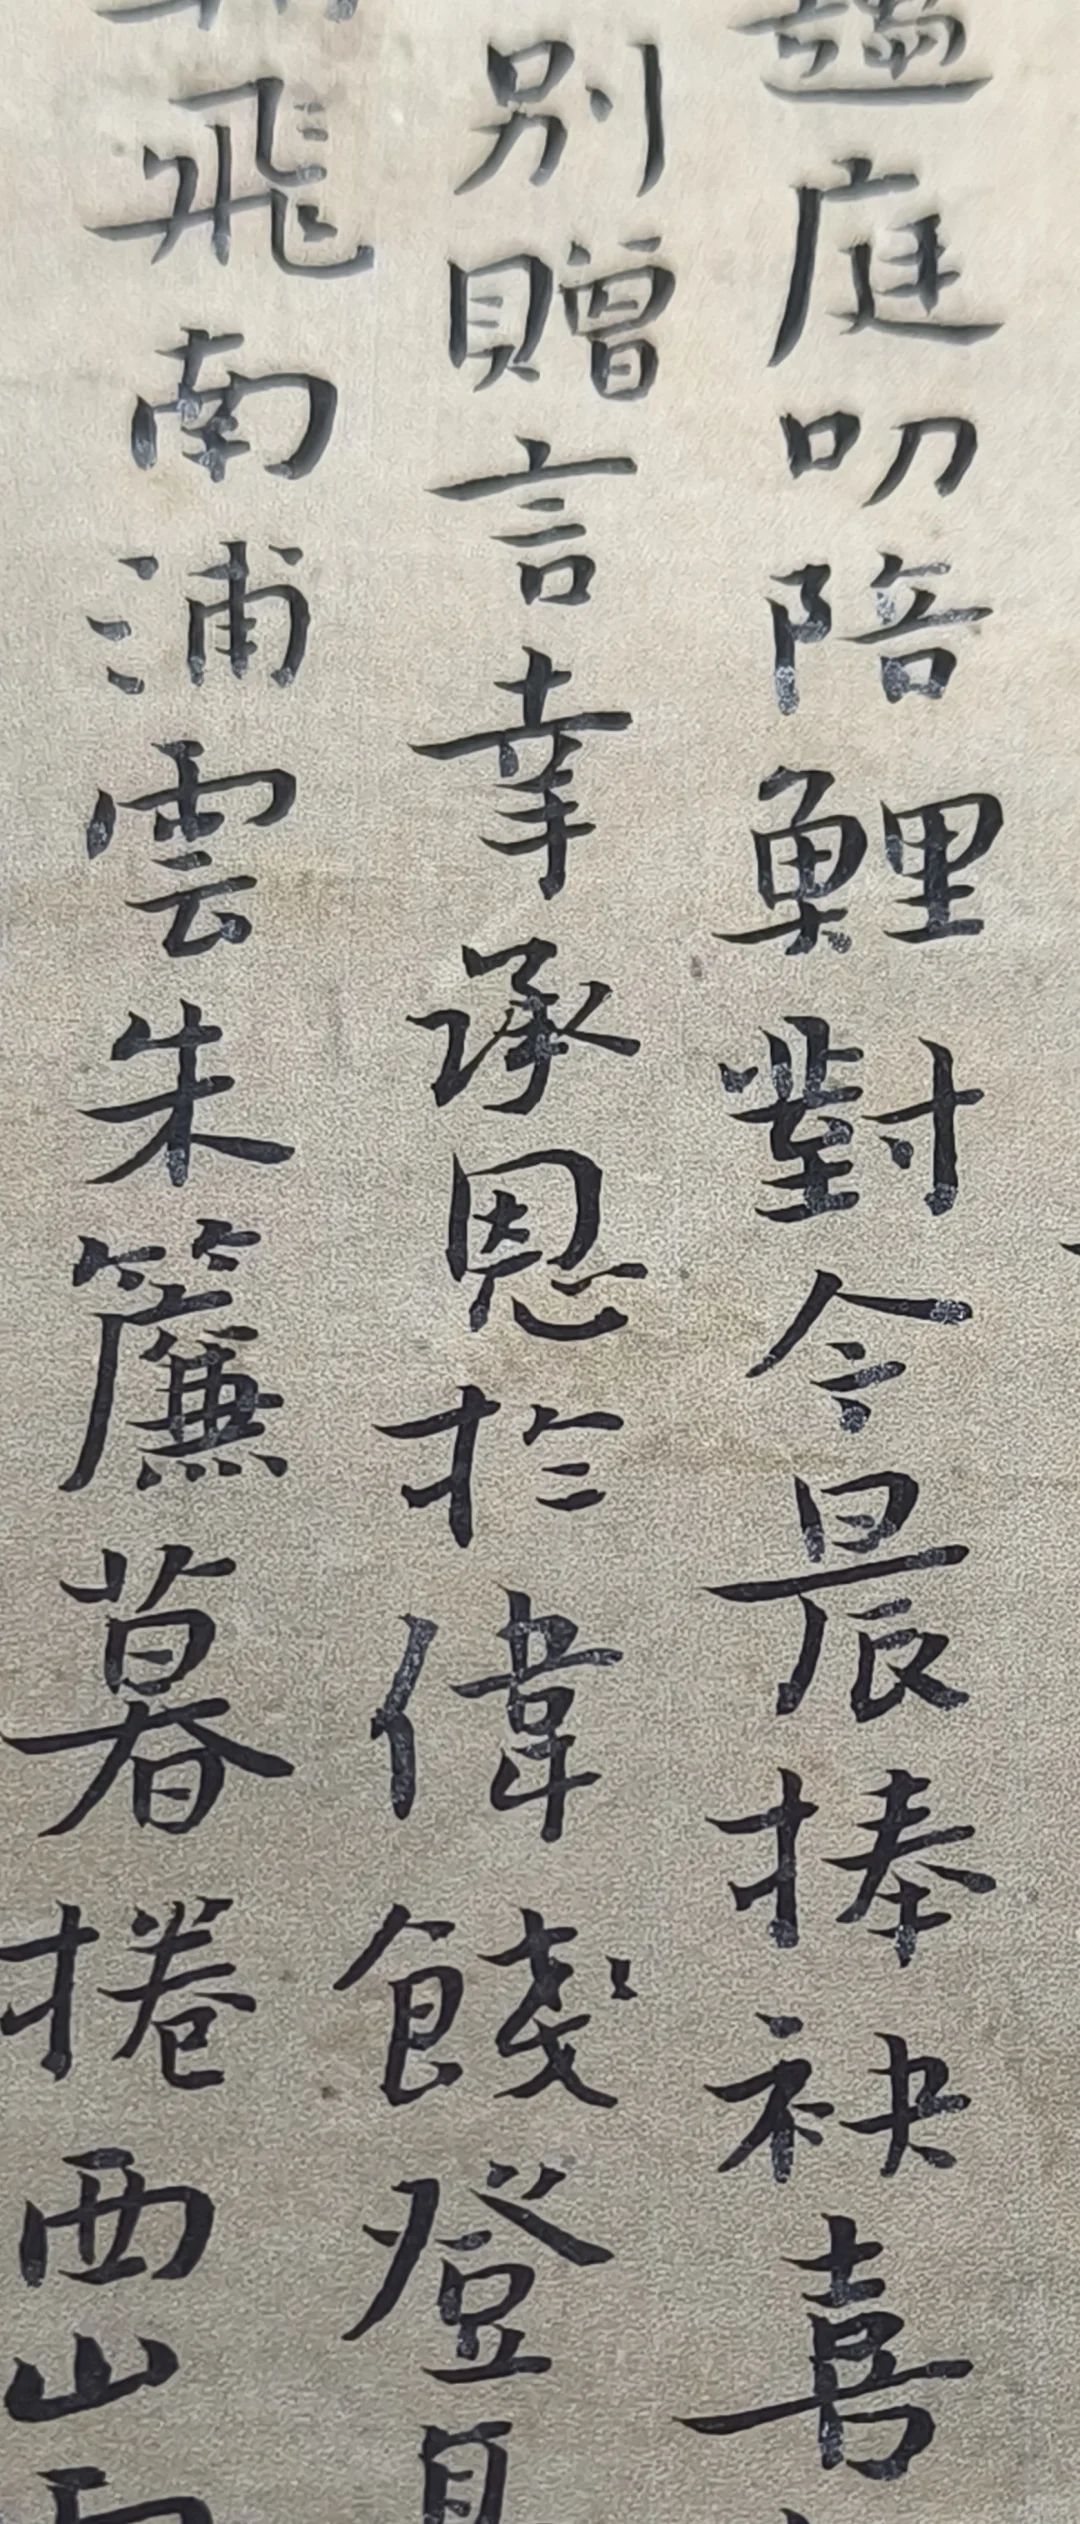 趨庭叨陪鯉對今晨捧袂喜
別贈言幸承恩於偉餞登
飛南浦雲朱簾暮捲西山